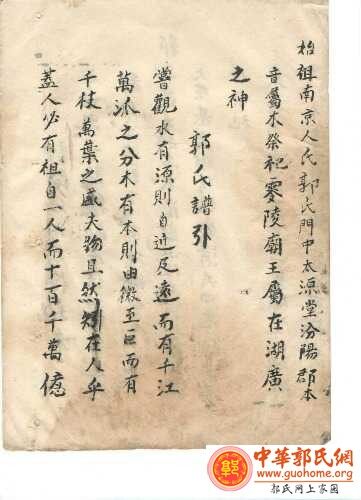 始祖南京人氏郭氏門中太源堂汾陽郡本
音屬木祭祀零陵廟王屬在湖廣
之神
郭氏譜引
嘗觀水有源則自近及遠而有千江
萬派之分木有本則由微至巨而有
千枝萬葉之盛夫物且然矧在人乎
蓋人必有祖自一人而十百千萬億
中華郭氏網
www.guohome.org
郭氏网上家园